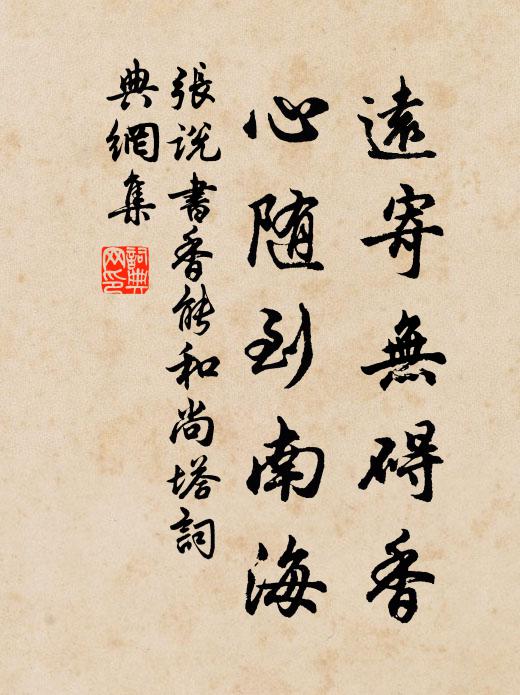 遠寄無碍香
心随到南海
張說書香能和尚塔詞
典網集
詞典
网印